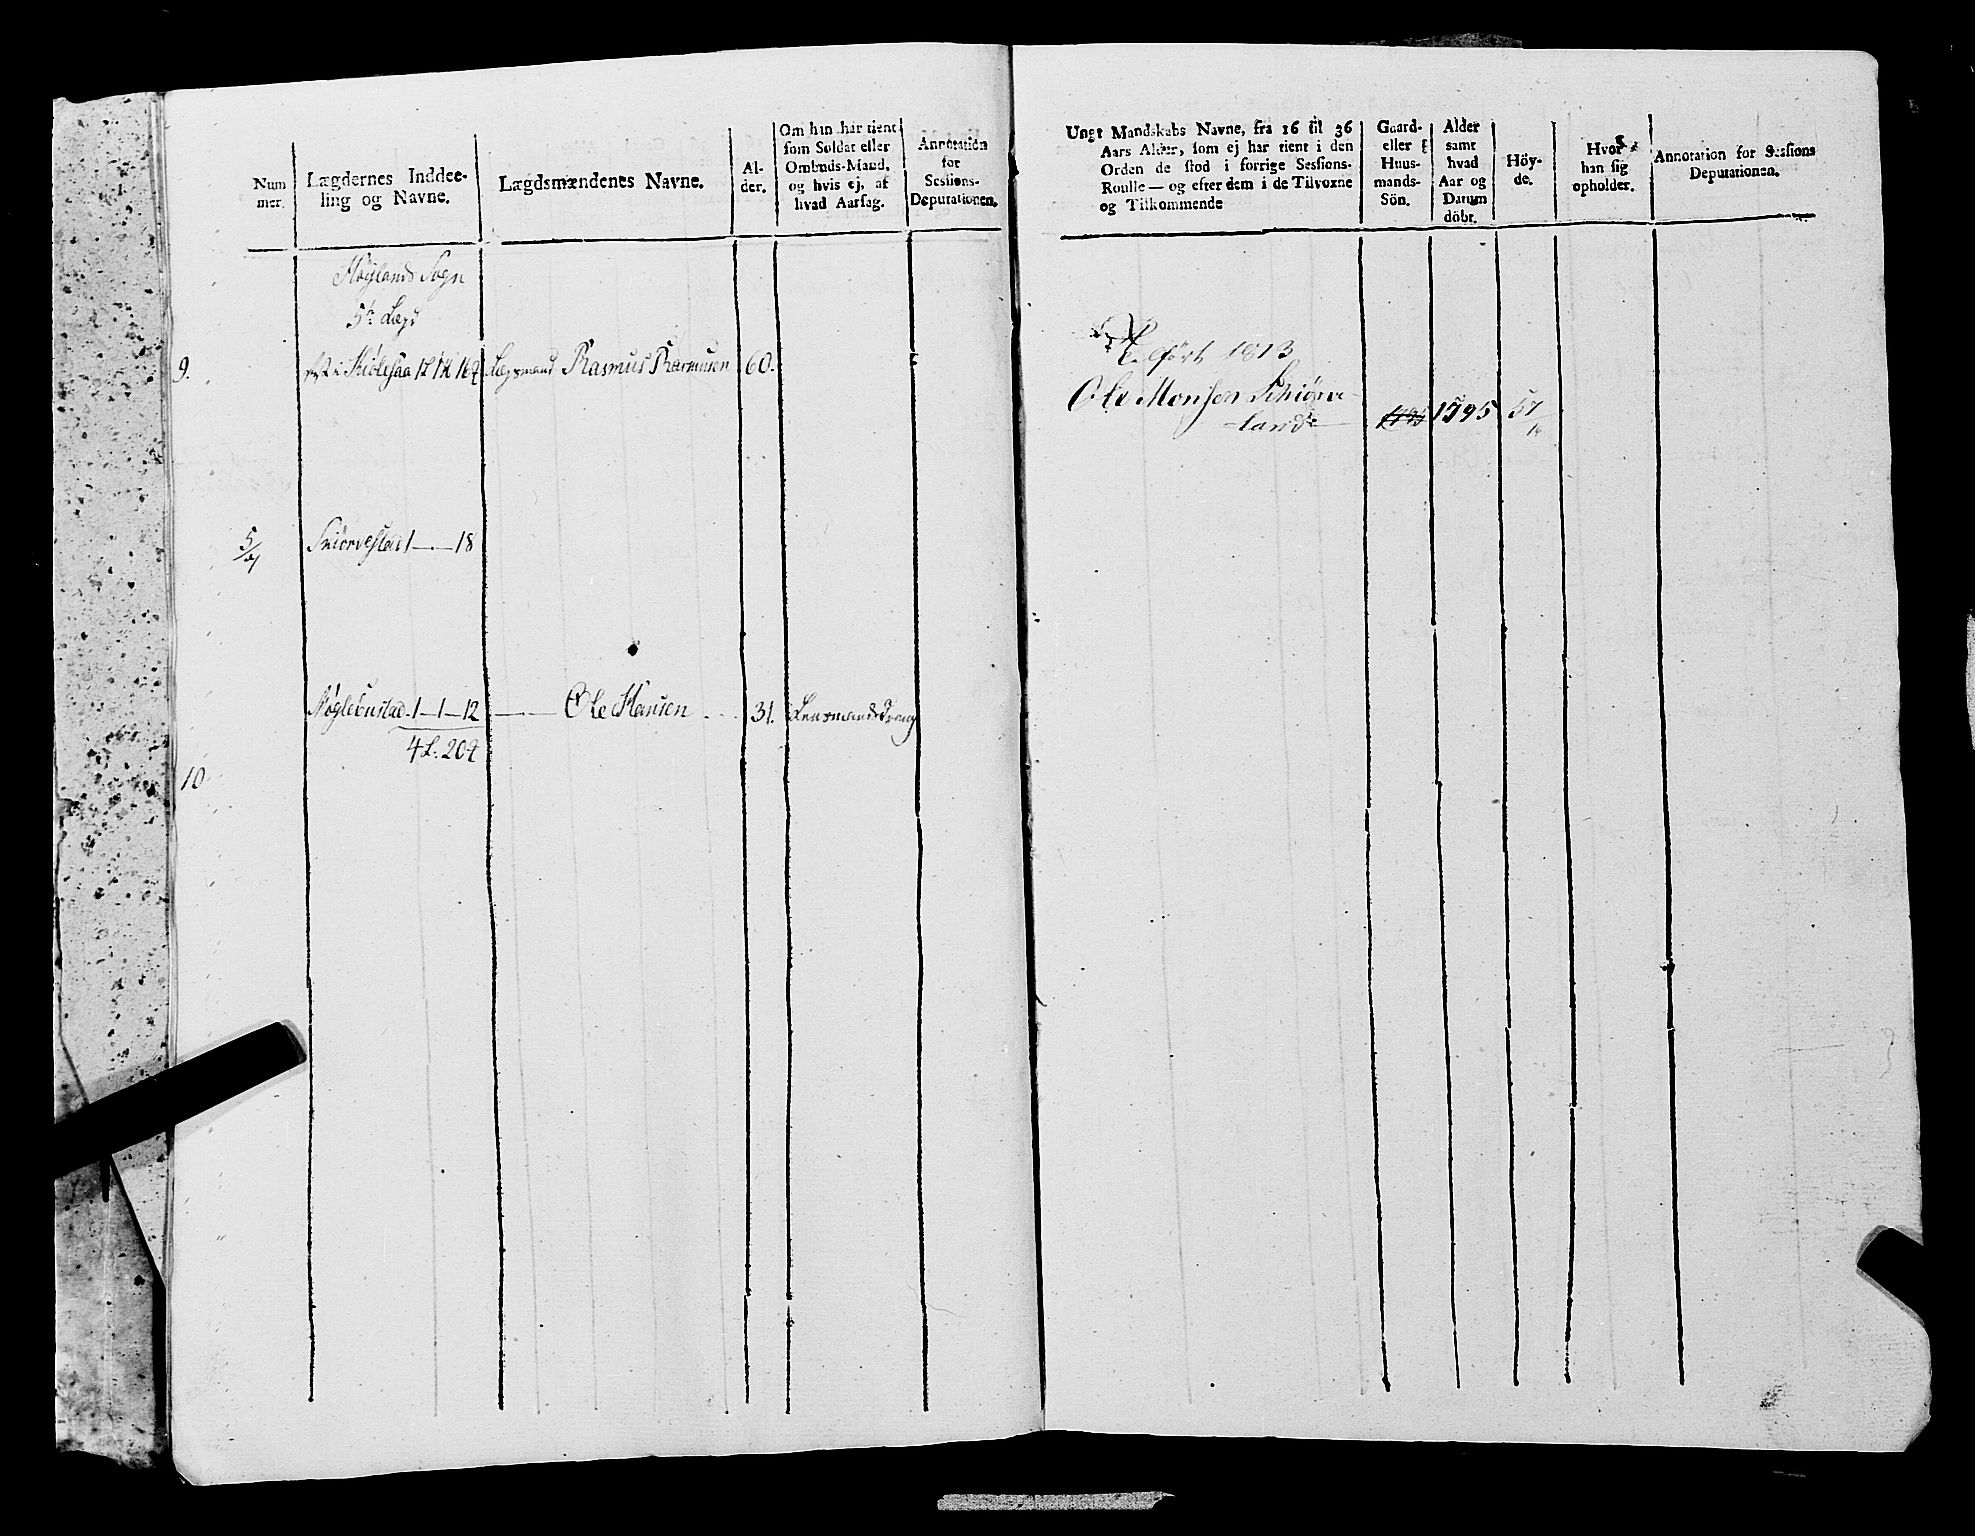 Num
mer.
Lægdernes Inddee-
ling og Navne.
Lægdsmændenes Navne.
Al-
der.
Om han har tient
som Soldat eller
Ombuds-Mand,
og hvis ej, af
hvad Aarsag.
Annotation
for
Sessions-
Deputationen.
Höylands Sogn
5te Lægd
9.
Kiølesaa
Lægsmand Rasmus Rasmusen 60.
5/
Skiørvestad 1 — 18
Nøglebustad 1-1-12 Ole Hansen 31. Lensmands Dreng
4 L. 204
10
Ungt Mandskabs Navne, fra 16 til 36
Aars Alder, som ej har tient i den
Orden de stod i forrige Sessions-
Roulle — og efter dem i de Tilvoxne
og Tilkommende
Gaard-
eller
Huus-
mands-
Sön.
Alder
samt
hvad
Aar og
Datum
döbt.
Höy-
de.
Hvor
han sig
opholder.
Annotation for Sessions
Deputationen.
Tilført 1813
Ole Monsen Schiørve-
land 1795 57/